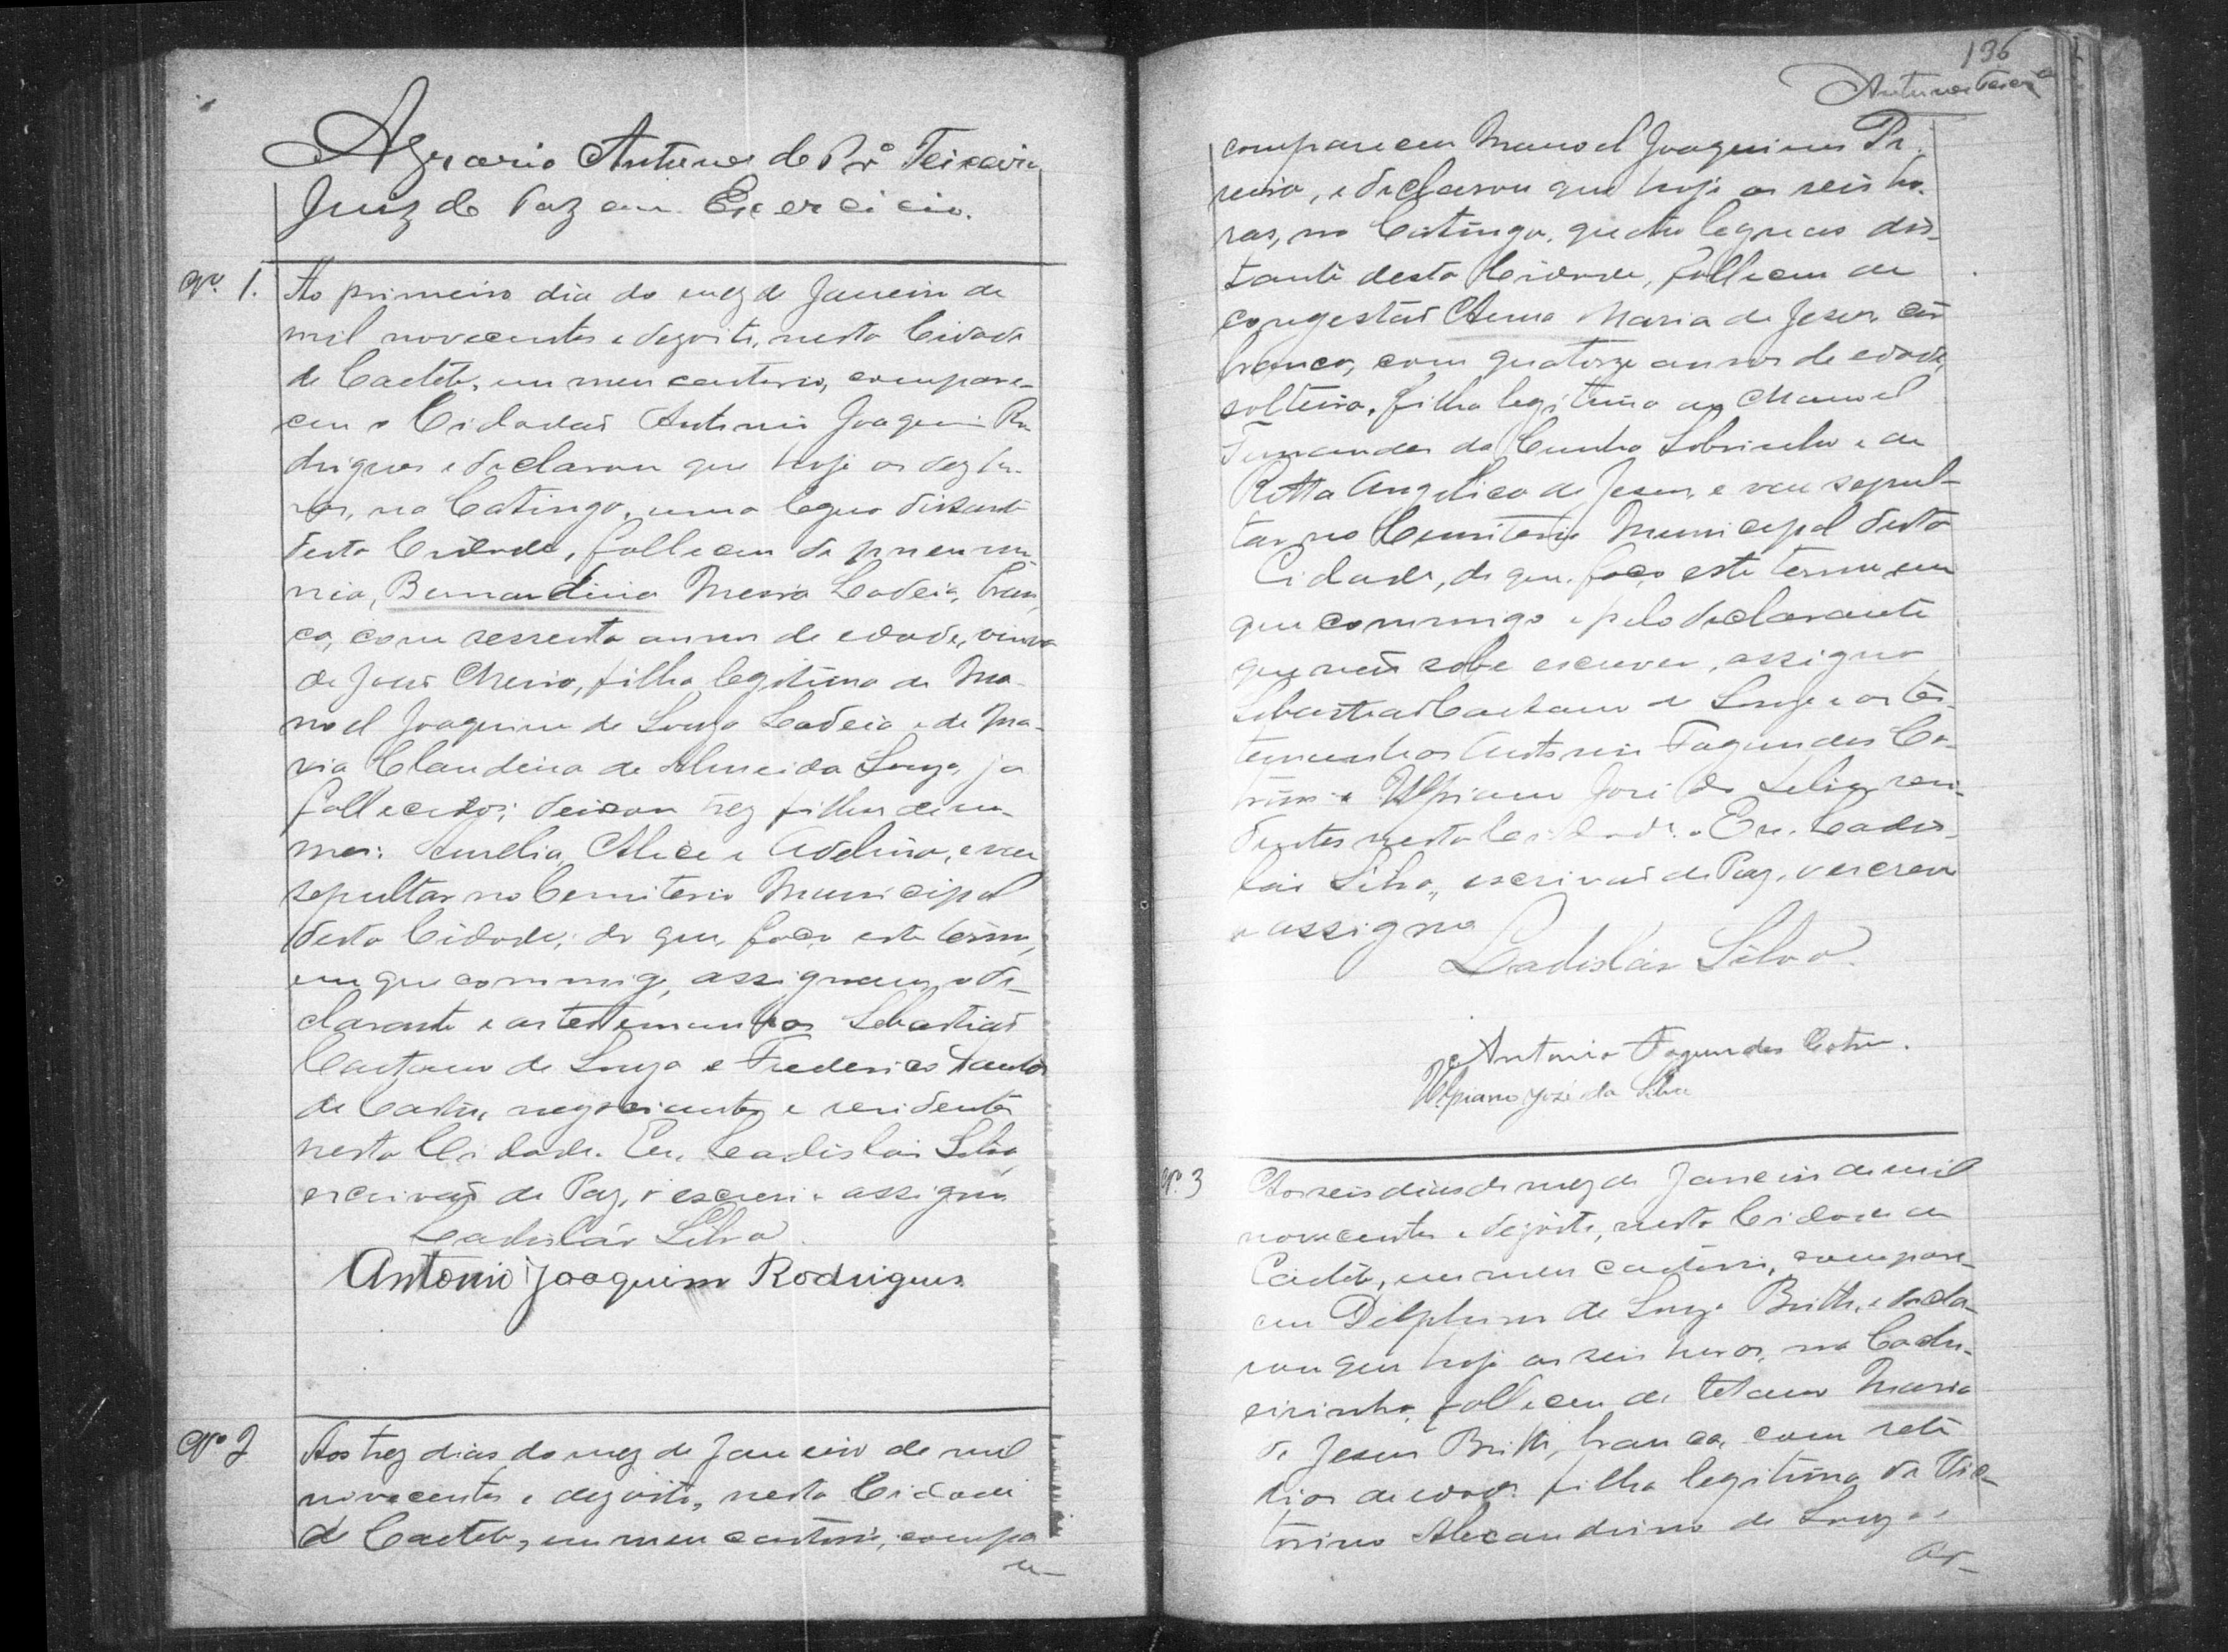 Antunes de Teixeira
Juiz de Paz em Exercicio.
Nº 1. Ao primeiro dia do mez de Janeiro de
mil novecentos e dezoito, nesta Cidade
de Caeteté, em meu cartorio, compare-
ceu o Cidadão Antonio Joaquim Ro
drigues e declarou que hoje as dez ho-
ras, na Catinga, uma legua distante
desta Cidade, falleceu de pneumo-
nia, Bernardina Maria Ladeia, bran
ca, com sessenta annos de edade, viuva
de João, filha legitima de Ma-
noel Joaquim de Souza Ladeia e de Ma-
ria Claudina de Almeida Souza, ja
fallecidos; deixou trez filhos de no-
mes: Aurelia, Alice e Adelina, e vae
sepultar no Cemiterio Municipal
desta Cidade; do que, faço este termo,
em que commigo, assignam o de-
clarante e as testemunhas Sebastião
Caetano de Souza e Frederico
de Castro, negociantes e residentes
nesta Cidade. Eu, Ladislau Silva,
escrivão de Paz, o escrevi e assigno
Ladisláo Silva.
Antonio Joaquim Rodrigues.
Nº 2 Aos trez dias do mez de Janeiro de mil
novecentos e dezoito, nesta Cidade
de Caeteté, em meu cartorio, compa
re-
136
Antunes Teixeira
compareceu Manoel Joaquim Pe
reira, e declarou que hoje as seis ho-
ras, no Catinga, quatro leguas dis-
tante desta Cidade, falleceu de
congestão Anna Maria de Jesus, côr
branca, com quatorze annos de edade,
solteira, filha legitima de Manoel
Fernandes da Cunha Sobrinho e de
Ritta Angelica de Jesus, e vae sepul-
tar no Cemiterio Municipal desta
Cidade, de que, faço este termo, em
que commigo e pelo declarante
que não sabe escrever, assigna
Sebastião Caetano de Souza e as tes-
temunhas Antonio Fagundes Co-
trim e Ulpiano José da Silva, resi-
dentes nesta Cidade. Eu, Ladis-
láo Silva, escrivão de Paz, o escrevi
e assigno
Ladisláo Silva.
Antonio Fagundes Cotrim.
Ulpiano José da Silva
Nº 3 Aos seis dias do mez de Janeiro de mil
novecentos e dezoito, nesta Cidade de
Caeteté, em meu cartorio, compare-
ceu Delphino de Souza Britto, e decla-
rou que hoje as seis horas, na
falleceu de tetano Maria
de Jesus Britto, branca, com sete
dias de edade, filha legitima de Vic-
torino Alexandrino de Souza e